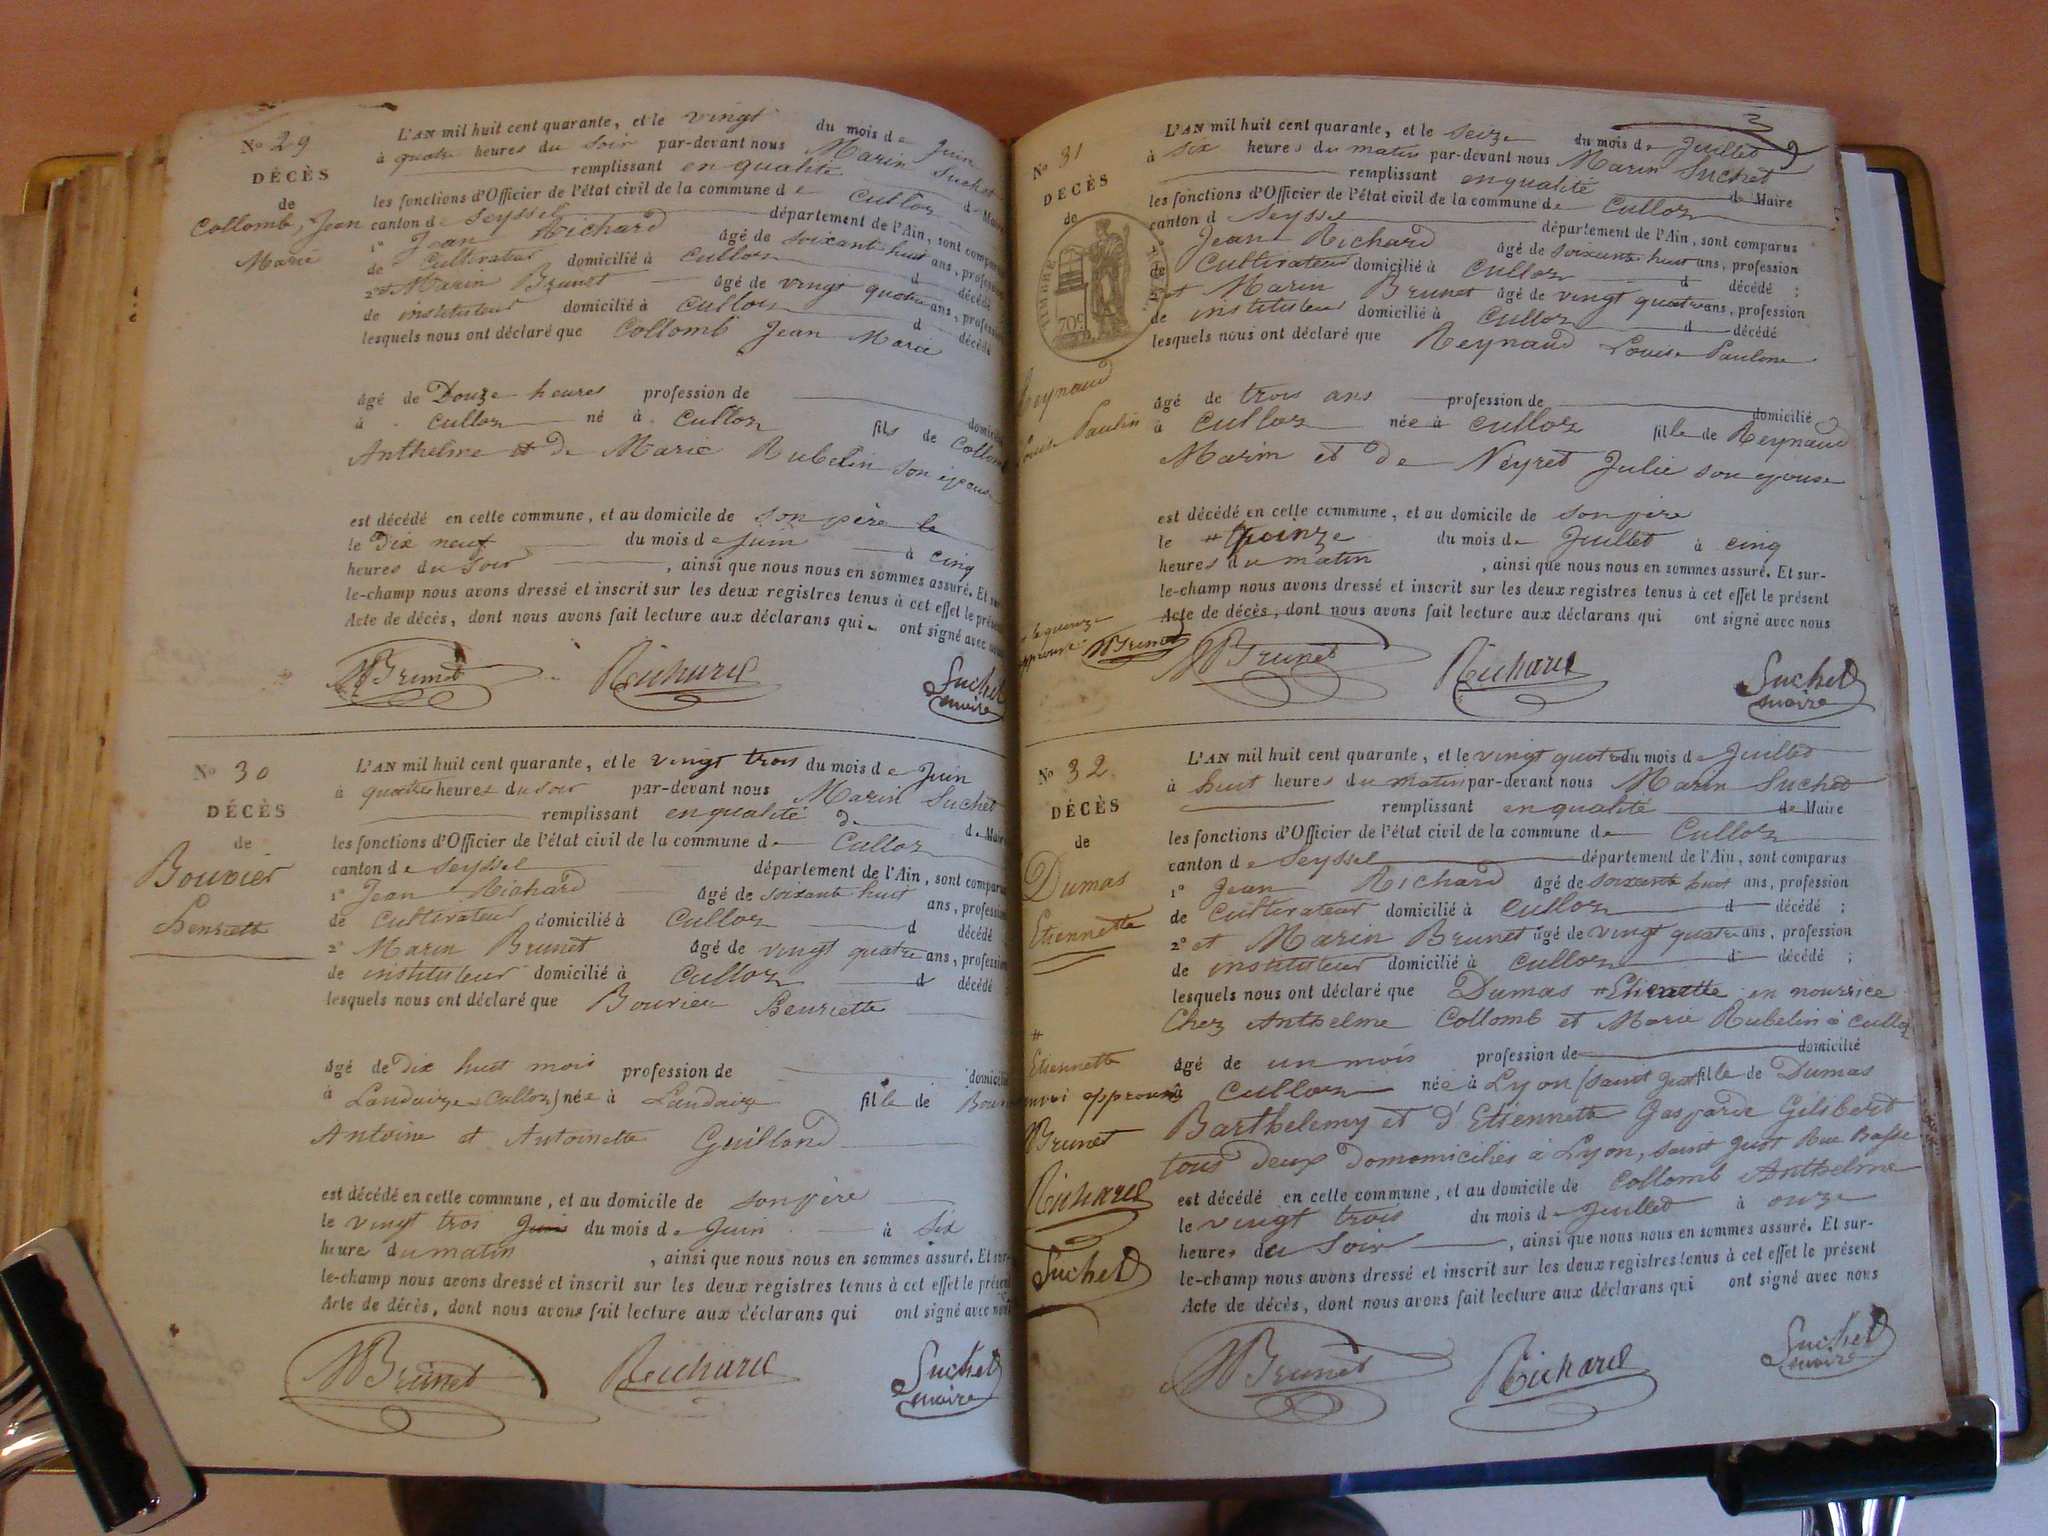 N° 29
DÉCÈS
de
Collomb, Jean
Marie
L'AN mil huit cent quarante, et le vingt du mois de Juin
à quatre heures du soir par-devant nous Marin Suchet
remplissant en qualité de Maire
les fonctions d'Officier de l'état civil de la commune de Culloz
canton de Seyssel département de l'Ain, sont comparus
1° Jean Richard âgé de soixante huit ans, profession
de Cultivateur domicilié à Culloz d décédé
2° et Marin Brunet âgé de vingt quatre ans, profession
de instituteur domicilié à Culloz d décédé
lesquels nous ont déclaré que Collomb Jean Marie
âgé de Douze heures profession de domicilié
à Culloz né à Culloz fils de Collomb
Anthelme et de Marie Rubelin son épouse
est décédé en cette commune, et au domicile de son père le
le Dix neuf du mois de Juin à cinq
heures du Soir, ainsi que nous nous en sommes assuré. Et sur-
le-champ nous avons dressé et inscrit sur les deux registres tenus à cet effet le présent
Acte de décès, dont nous avons fait lecture aux déclarans qui ont signé avec nous
MBrunet Richard Suchet
maire
N° 30
DÉCÈS
de
Bouvier
Henriette
L'AN mil huit cent quarante, et le vingt trois du mois de Juin
à quatre heures du soir par-devant nous Marin Suchet
remplissant en qualité de de Maire
les fonctions d'Officier de l'état civil de la commune de Culloz
canton de Seyssel département de l'Ain, sont comparus
1° Jean Richard âgé de soixante huit ans, profession
de Cultivateur domicilié à Culloz d décédé
2° Marin Brunet âgé de vingt quatre ans, profession
de instituteur domicilié à Culloz d décédé
lesquels nous ont déclaré que Bouvier Henriette
âgé de Dix huit mois profession de domicilié
à Landaize (Culloz) née à Landaize fille de
Antoine et Antoinette Guilland
est décédé en cette commune, et au domicile de son père
le vingt trois Juin du mois de Juin à Six
heure du matin, ainsi que nous nous en sommes assuré. Et sur-
le-champ nous avons dressé et inscrit sur les deux registres tenus à cet effet le présent
Acte de décès, dont nous avons fait lecture aux déclarans qui ont signé avec nous
MBrunet Richard Suchet
maire
N° 31
DÉCÈS
de
TIMBRE ROYAL
70c
Reynaud
Louise Pauline
L'AN mil huit cent quarante, et le seize du mois de Juillet
à six heures du matin par-devant nous Marin Suchet
remplissant en qualité de Maire
les fonctions d'Officier de l'état civil de la commune de Culloz
canton d Seyssel département de l'Ain, sont comparus
Jean Richard âgé de soixante huit ans, profession
de Cultivateur domicilié à Culloz d décédé ;
et Marin Brunet âgé de vingt quatre ans, profession
de instituteur domicilié à Culloz d décédé
lesquels nous ont déclaré que Reynaud Louise Pauline
âgé de trois ans profession de domicilié
à Culloz née à Culloz fille de Reynaud
Marin et de Neyret Julie son épouse
est décédé en cette commune, et au domicile de son père
le # quinze du mois de Juillet à cinq
heures du matin, ainsi que nous nous en sommes assuré. Et sur-
le-champ nous avons dressé et inscrit sur les deux registres tenus à cet effet le présent
Acte de décès, dont nous avons fait lecture aux déclarans qui ont signé avec nous
le quinze
approuvé MBrunet
MBrunet Richard Suchet
maire
N° 32
DÉCÈS
de
Dumas
Etiennette
L'AN mil huit cent quarante, et le vingt quatre du mois de Juillet
à huit heures du matin par-devant nous Marin Suchet
remplissant en qualité de Maire
les fonctions d'Officier de l'état civil de la commune de Culloz
canton de Seyssel département de l'Ain, sont comparus
1° Jean Richard âgé de soixante huit ans, profession
de Cultivateur domicilié à Culloz d décédé ;
2° et Marin Brunet âgé de vingt quatre ans, profession
de instituteur domicilié à Culloz d décédé ;
lesquels nous ont déclaré que Dumas # Etiennette en nourrice
Chez Anthelme Collomb et Marie Rubelin à Culloz
âgé de un mois profession de domicilié
à Culloz née à Lyon (saint Just fille de Dumas
Barthelemy et d'Etiennette Gasparde Gilibert
tous deux domomiciliés à Lyon, saint Just Rue Basse
est décédé en cette commune, et au domicile de Collomb Anthelme
le vingt trois du mois de Juillet à onze
heures du Soir, ainsi que nous nous en sommes assuré. Et sur-
le-champ nous avons dressé et inscrit sur les deux registres tenus à cet effet le présent
Acte de décès, dont nous avons fait lecture aux déclarans qui ont signé avec nous
#
Etiennette
renvoi approuvé
MBrunet
Richard
Suchet
MBrunet Richard Suchet
maire